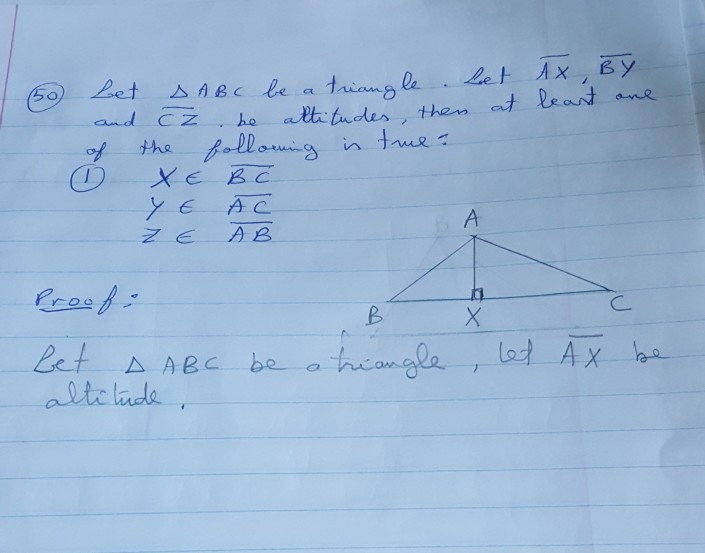 (50) Let △ABC be a triangle. Let A̅X̅, B̅Y̅
and C̅Z̅ be altitudes, then at least one
of the following is true:
(1) X ∈ B̅C̅
Y ∈ A̅C̅
Z ∈ A̅B̅
A
Proof:
B X C
Let △ABC be a triangle, let A̅X̅ be
altitude.